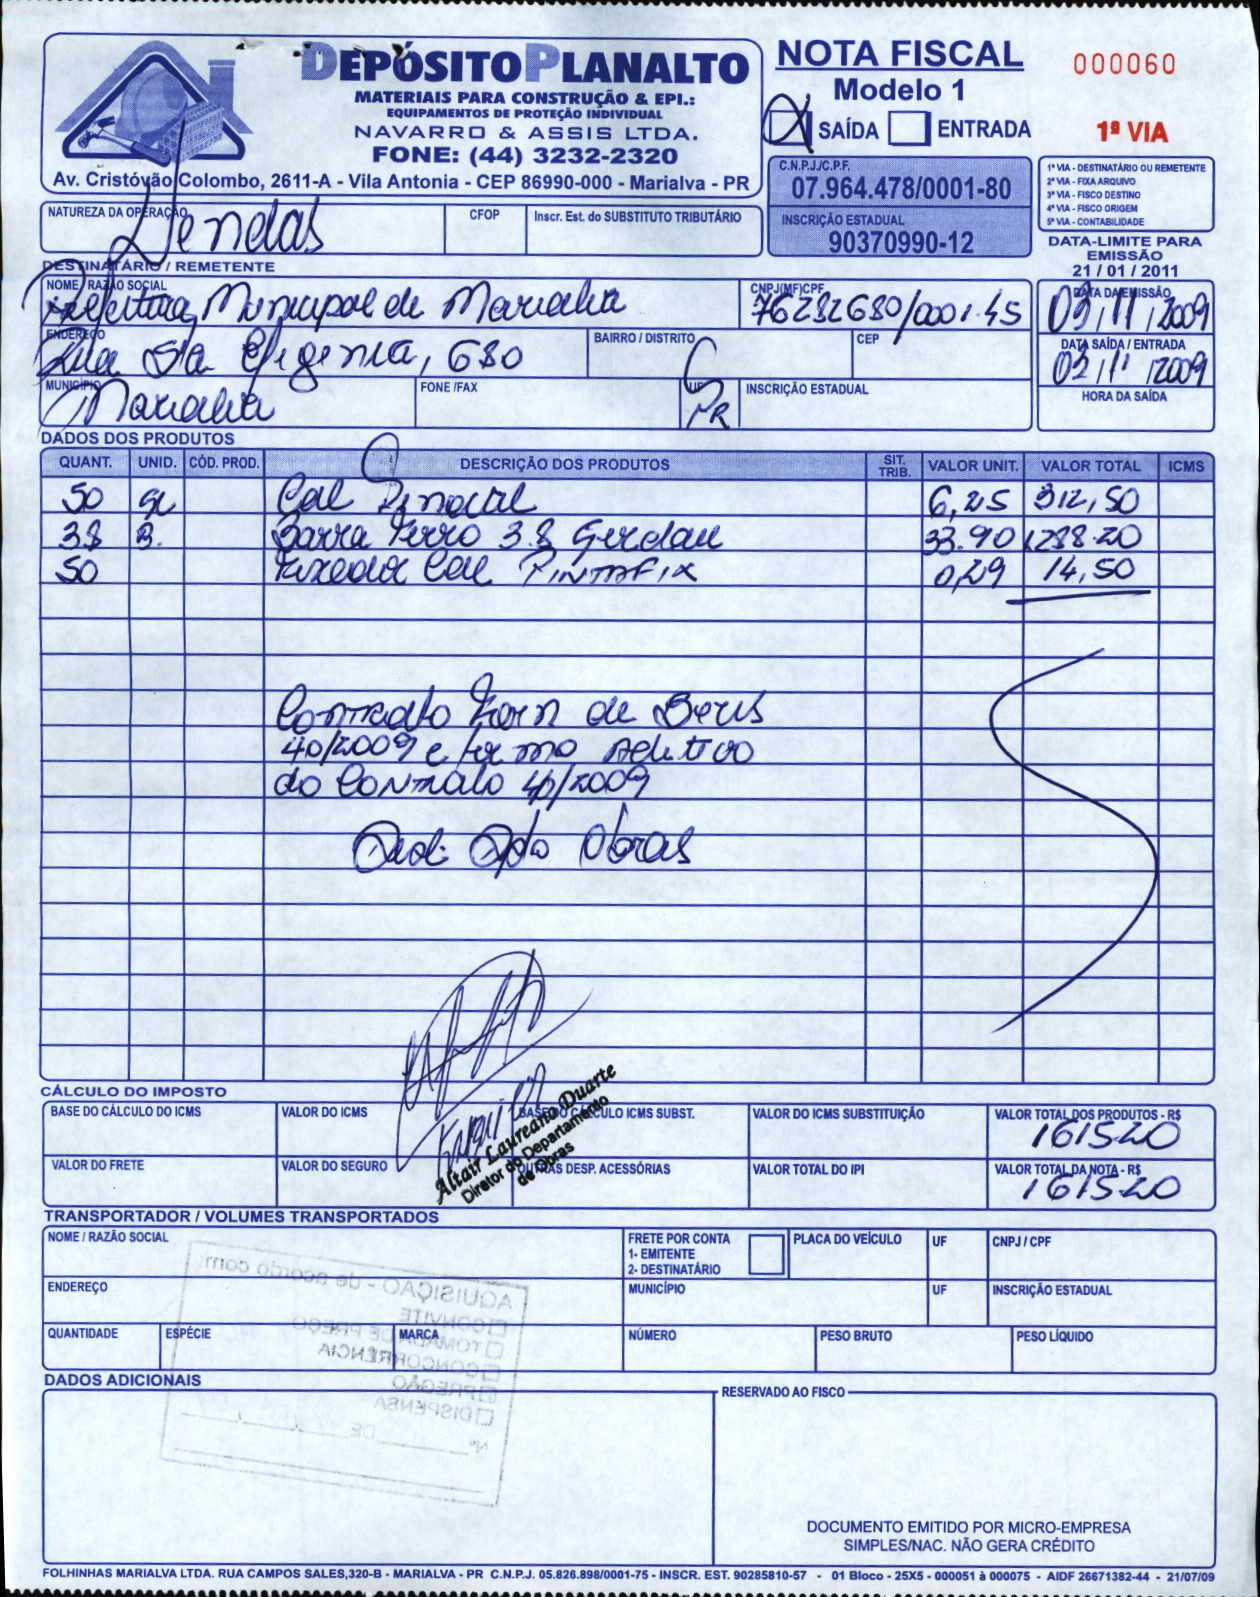 DEPÓSITO PLANALTO
MATERIAIS PARA CONSTRUÇÃO & EPI.:
EQUIPAMENTOS DE PROTEÇÃO INDIVIDUAL
NAVARRO & ASSIS LTDA.
FONE: (44) 3232-2320
Av. Cristóvão Colombo, 2611-A - Vila Antonia - CEP 86990-000 - Marialva - PR
NOTA FISCAL
Modelo 1
X SAÍDA ENTRADA
000060
1ª VIA
C.N.P.J./C.P.F.
07.964.478/0001-80
INSCRIÇÃO ESTADUAL
90370990-12
1ª VIA - DESTINATÁRIO OU REMETENTE
2ª VIA - FIXA ARQUIVO
3ª VIA - FISCO DESTINO
4ª VIA - FISCO ORIGEM
5ª VIA - CONTABILIDADE
DATA-LIMITE PARA
EMISSÃO
21 / 01 / 2011
NATUREZA DA OPERAÇÃO
Vendas
CFOP
Inscr. Est. do SUBSTITUTO TRIBUTÁRIO
DESTINATÁRIO / REMETENTE
NOME / RAZÃO SOCIAL
Prefeitura Municipal de Marialva
CNPJ(MF)CPF
76282680/0001-45
DATA DA EMISSÃO
03/11/2009
ENDEREÇO
Rua Sta Efigenia, 680
BAIRRO / DISTRITO
CEP
DATA SAÍDA / ENTRADA
03/11/2009
MUNICÍPIO
Marialva
FONE /FAX
UF
PR
INSCRIÇÃO ESTADUAL
HORA DA SAÍDA
DADOS DOS PRODUTOS
QUANT. UNID. CÓD. PROD. DESCRIÇÃO DOS PRODUTOS SIT. TRIB. VALOR UNIT. VALOR TOTAL ICMS
50 Cal 6,25 312,50
38 B. Barra Ferro 3.8 Gerdau 33.90 1288.20
50 Fixador Cal PINTAFIX 0,29 14,50
Contrato Forn de Bens
40/2009 e termo Aditivo
do Contrato 40/2009
Obras
Altair Laureano Duarte
Diretor do Departamento
de Obras
CÁLCULO DO IMPOSTO
BASE DO CÁLCULO DO ICMS
VALOR DO ICMS
BASE DO CÁLCULO ICMS SUBST.
VALOR DO ICMS SUBSTITUIÇÃO
VALOR TOTAL DOS PRODUTOS - R$
1615.20
VALOR DO FRETE
VALOR DO SEGURO
OUTRAS DESP. ACESSÓRIAS
VALOR TOTAL DO IPI
VALOR TOTAL DA NOTA - R$
1615.20
TRANSPORTADOR / VOLUMES TRANSPORTADOS
NOME / RAZÃO SOCIAL
FRETE POR CONTA
1- EMITENTE
2- DESTINATÁRIO
PLACA DO VEÍCULO
UF
CNPJ / CPF
ENDEREÇO
MUNICÍPIO
UF
INSCRIÇÃO ESTADUAL
QUANTIDADE
ESPÉCIE
MARCA
NÚMERO
PESO BRUTO
PESO LÍQUIDO
AQUISIÇÃO - de acordo com:
CONVITE
TOMADA DE PREÇO
CONCORRÊNCIA
PREGÃO
DISPENSA
Nº DE
DADOS ADICIONAIS
RESERVADO AO FISCO
DOCUMENTO EMITIDO POR MICRO-EMPRESA
SIMPLES/NAC. NÃO GERA CRÉDITO
FOLHINHAS MARIALVA LTDA. RUA CAMPOS SALES,320-B - MARIALVA - PR C.N.P.J. 05.826.898/0001-75 - INSCR. EST. 90285810-57 - 01 Bloco - 25X5 - 000051 à 000075 - AIDF 26671382-44 - 21/07/09